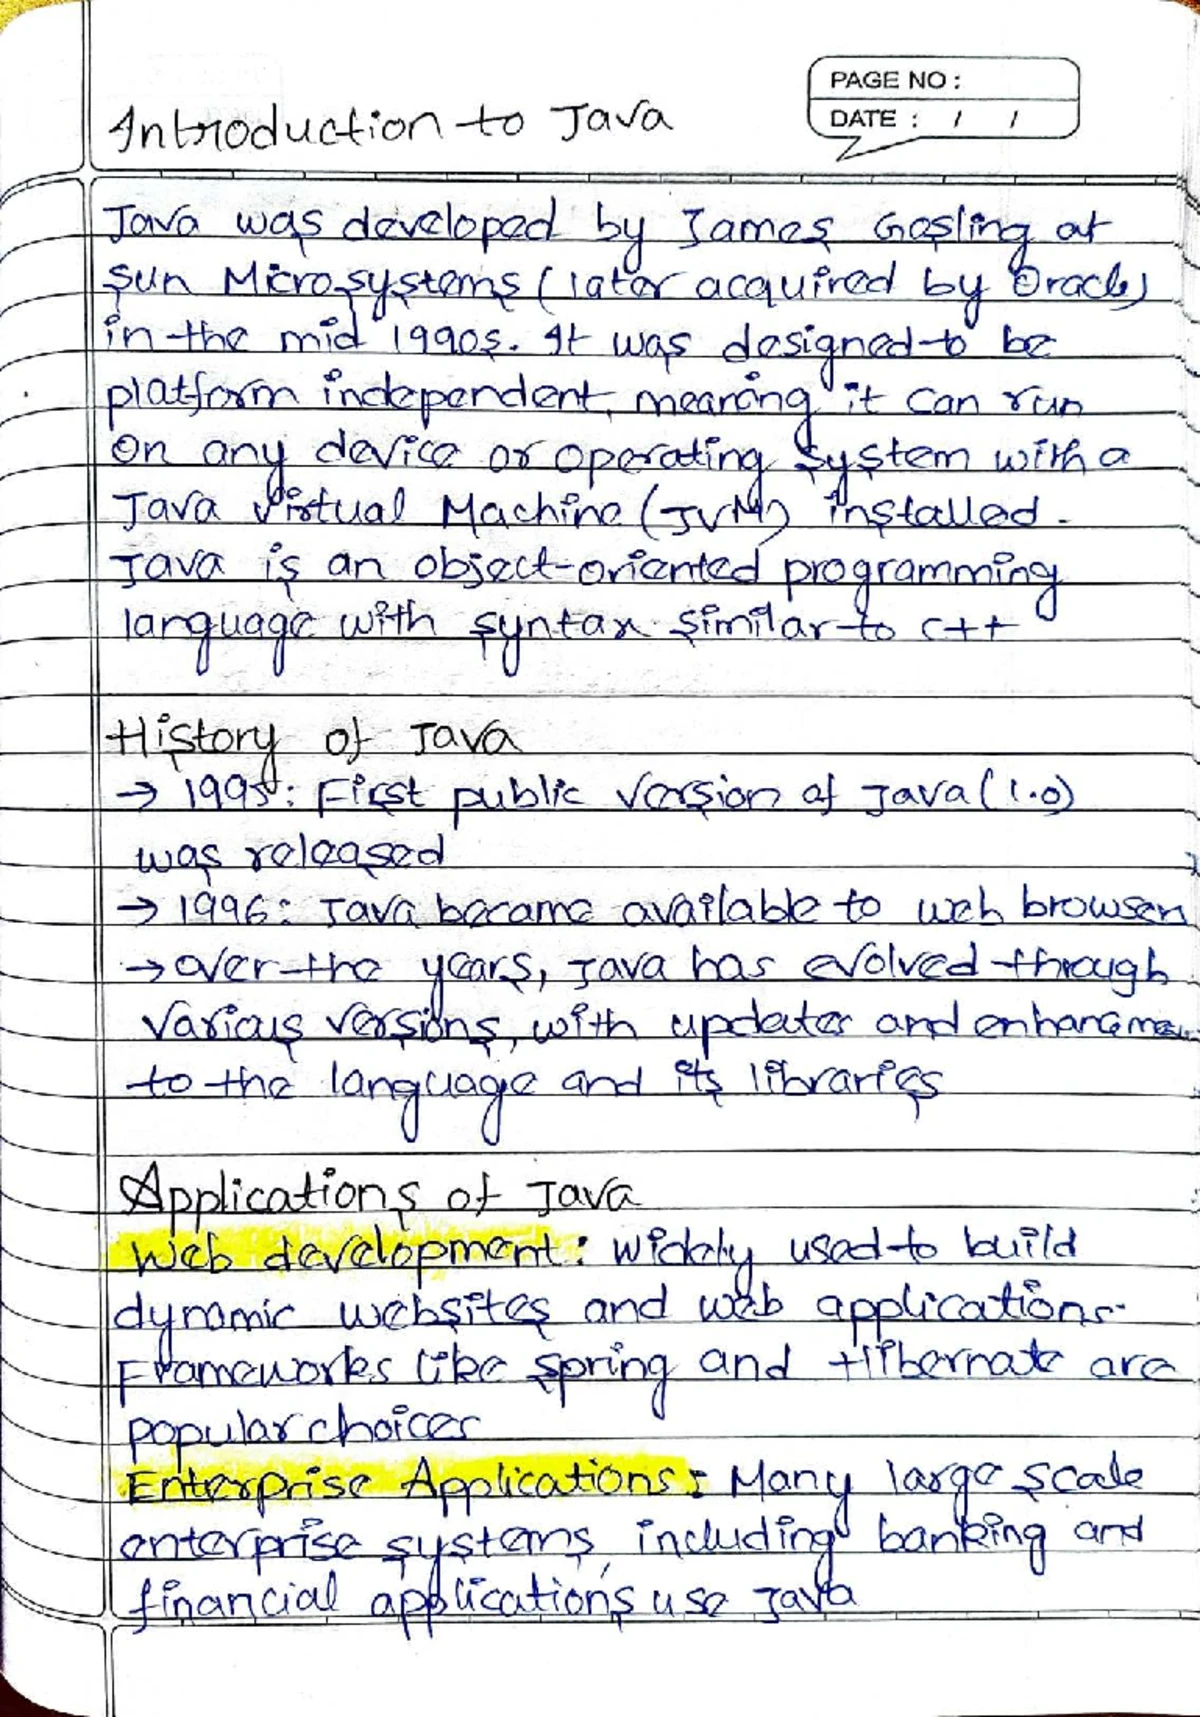 PAGE NO :
DATE : / /
Introduction to Java
Java was developed by James Gosling at
Sun Microsystems (later acquired by Oracle)
in the mid 1990s. It was designed to be
platform independent, meaning it can run
on any device or operating system with a
Java Virtual Machine (JVM) installed.
Java is an object-oriented programming
language with syntax similar to C++
History of Java
→ 1995: First public version of Java (1.0)
was released
→ 1996: Java became available to web browsers
→ over the years, Java has evolved through
various versions, with updates and
to the language and its libraries
Applications of Java
Web development: Widely used to build
dynamic websites and web applications.
Frameworks like Spring and Hibernate are
popular choices
Enterprise Applications: Many large scale
enterprise systems, including banking and
financial applications use Java